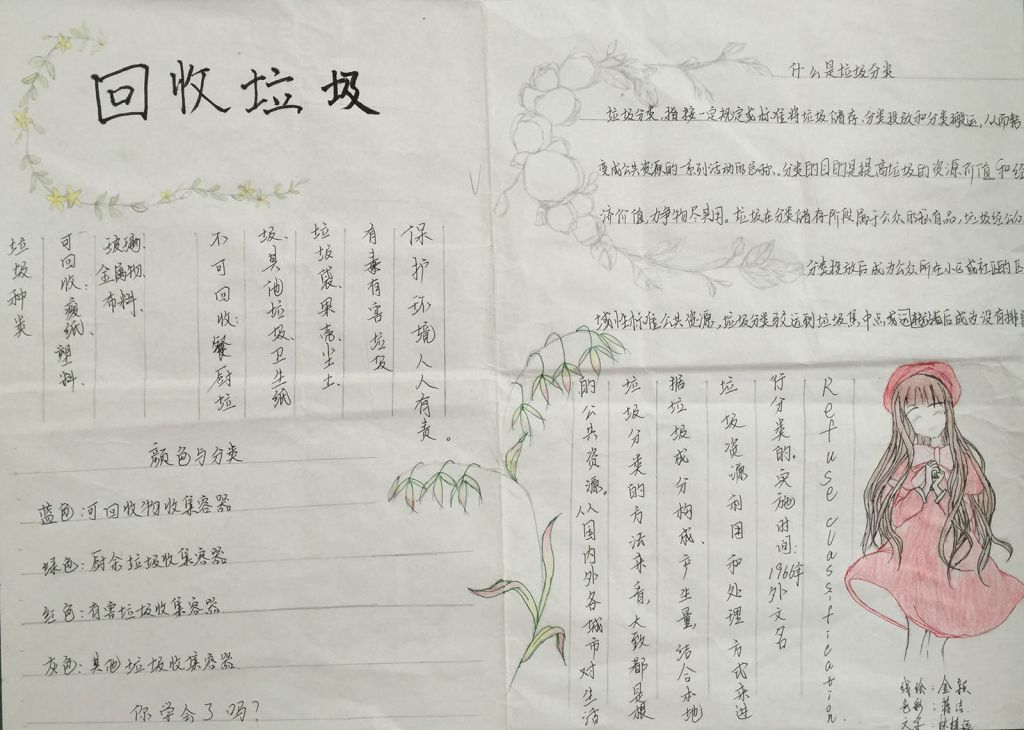 回收垃圾
垃圾种类
可回收:废纸、塑料、
玻璃、金属物、布料、
不可回收:餐厨垃
圾、其他垃圾、卫生纸
垃圾袋、果壳、尘土、
有毒有害垃圾
保护环境人人有责。
颜色与分类
蓝色:可回收物收集容器
绿色:厨余垃圾收集容器
红色:有害垃圾收集容器
灰色:其他垃圾收集容器
你学会了吗?
什么是垃圾分类
垃圾分类,指按一定规定或标准将垃圾储存、分类投放和分类搬运,从而转
变成公共资源的一系列活动的总称。分类的目的是提高垃圾的资源价值和经
济价值,力争物尽其用。垃圾在分类储存阶段属于公众的私有品,垃圾经公众
分类投放后成为公众所在小区或社区的区
域性标准公共资源。垃圾分类驳运到垃圾集中点或后成为没有排
Refuse classification.
行分类的。实施时间:1966年外文名
垃圾资源利用和处理方式来进
据垃圾成分构成、产生量,结合本地
垃圾分类的方法来看,大致都是根
的公共资源。从国内外各城市对生活
线绘:金颖
色彩:
文字: